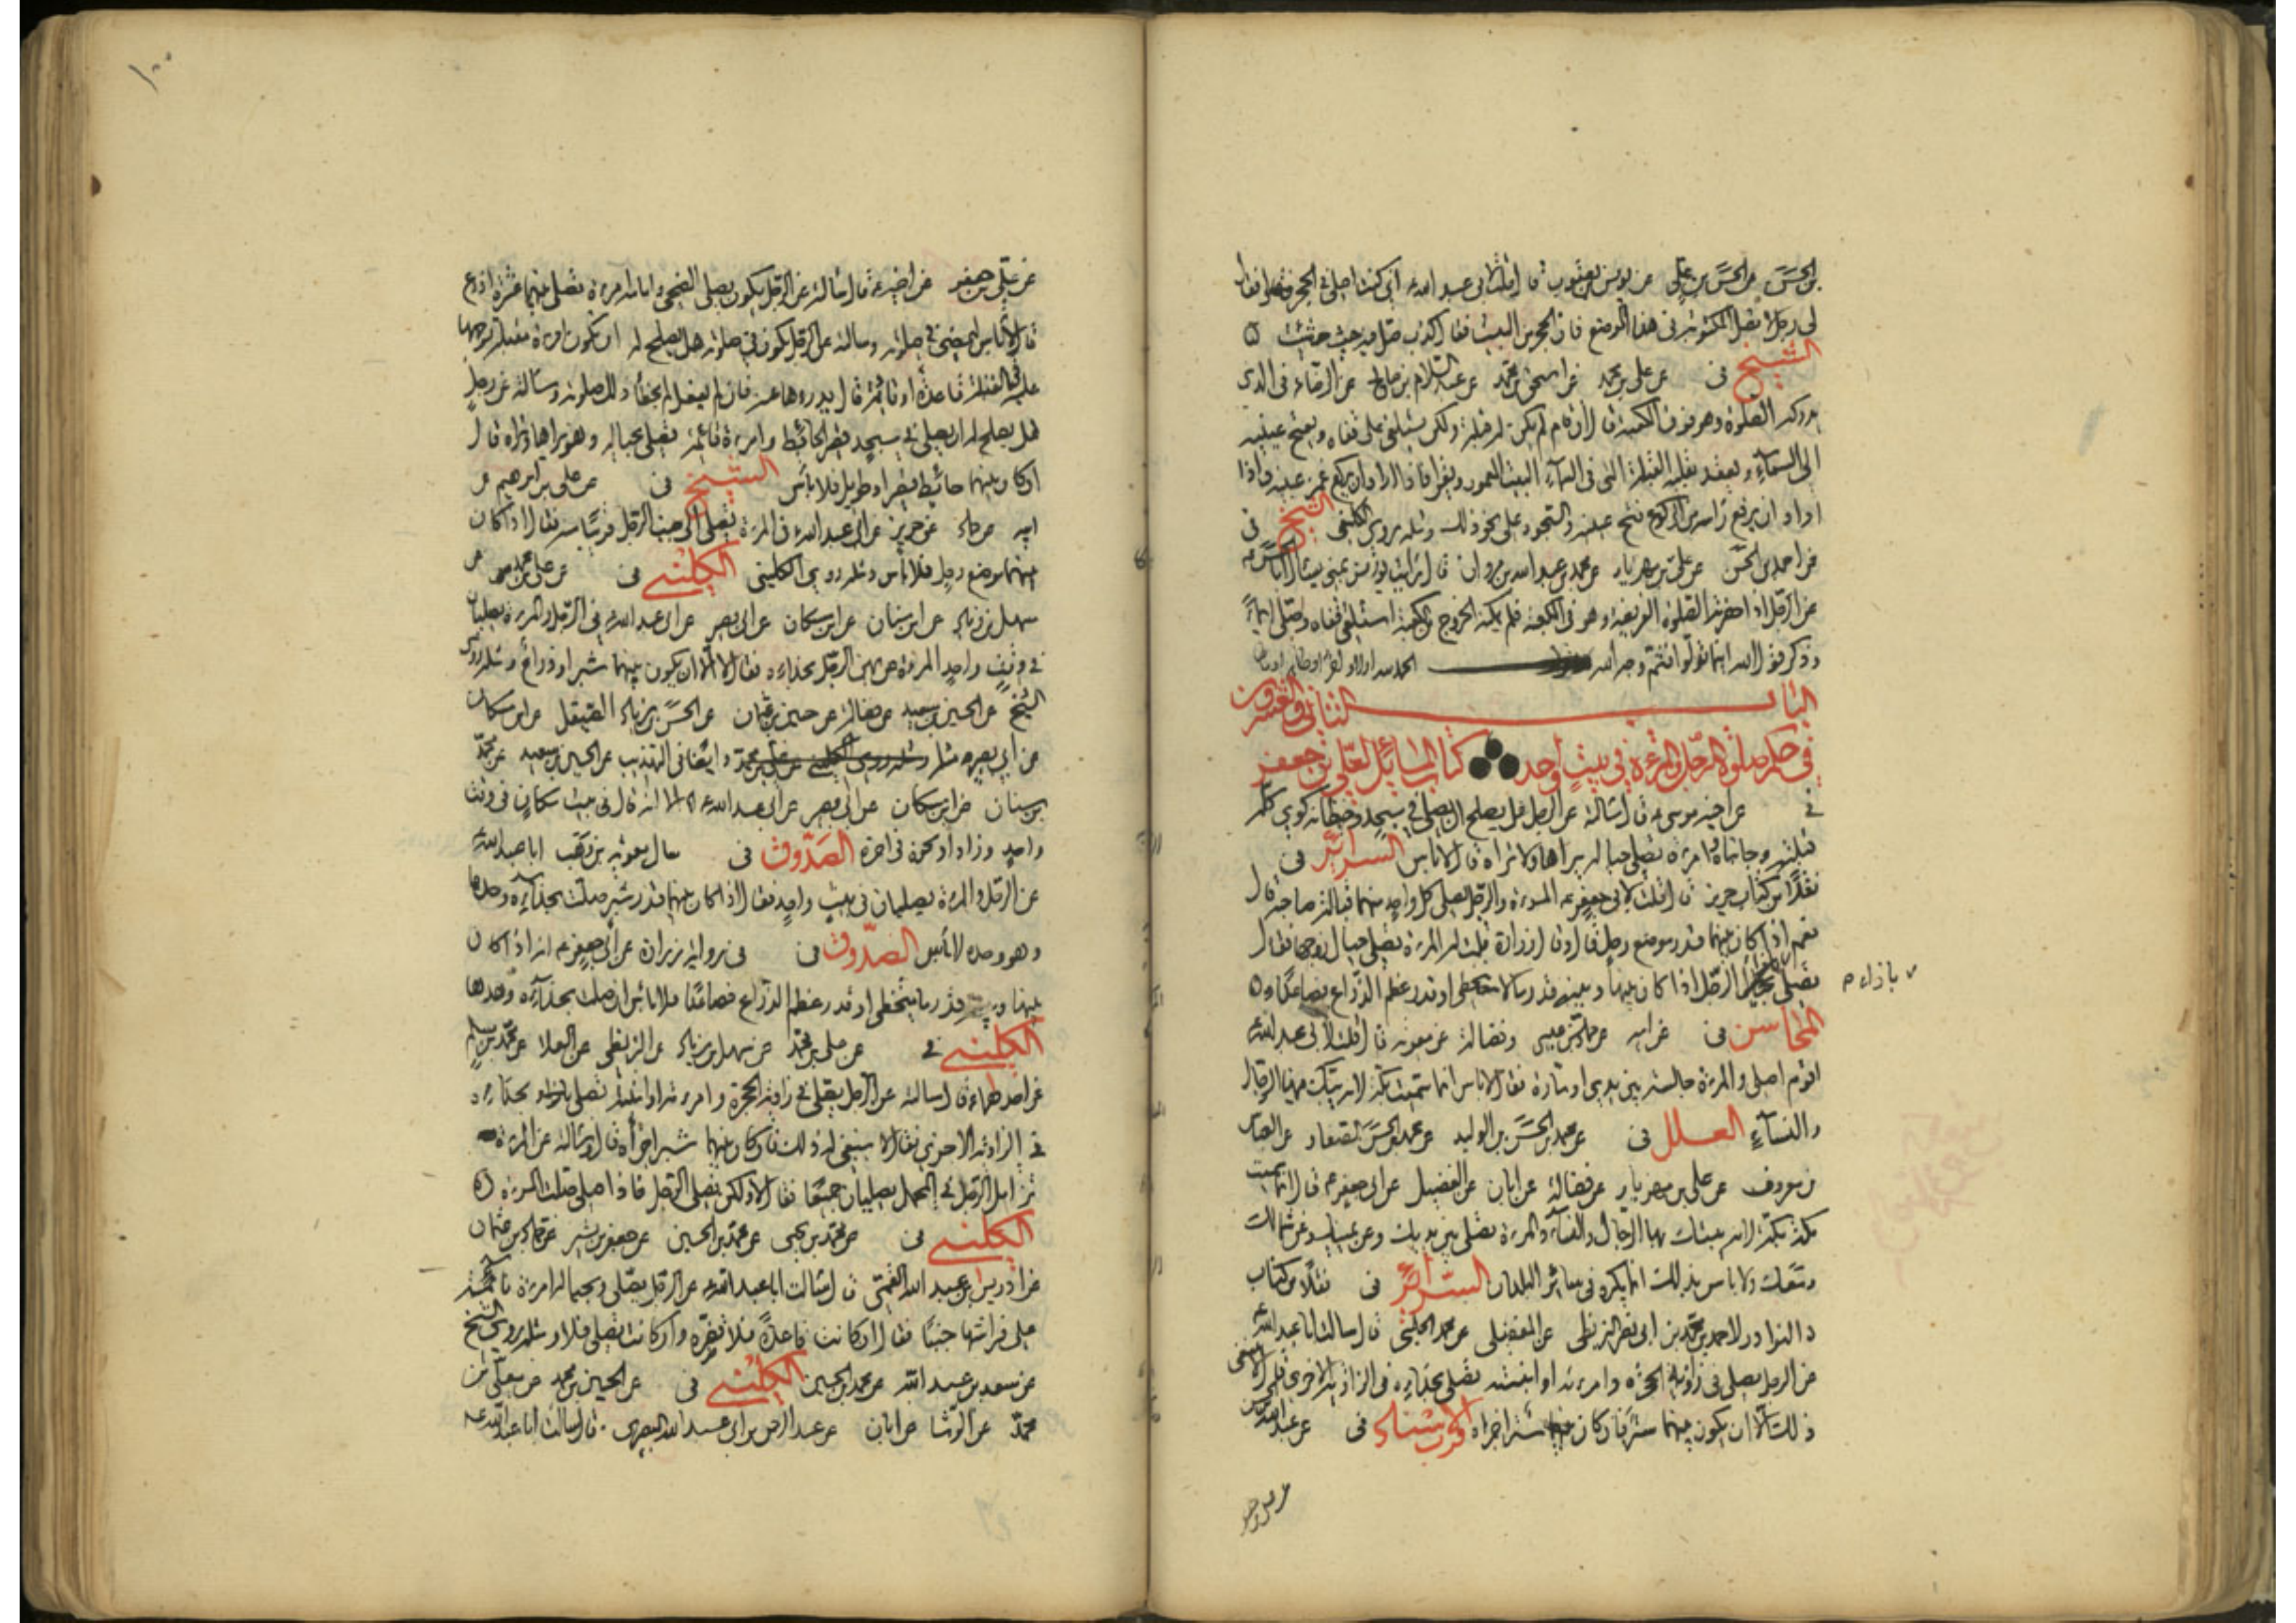 بن الحسن عن الحسن بن علي عن يونس بن يعقوب قال قلت لابي عبد الله ع اني كنت اصلي في الحجر فقال
لي رجل لا تصل المكتوبة في هذا الموضع فان الحجر من البيت فقال كذب صل فيه حيث شئت
الشيخ في عن علي بن محمد عن اسحق بن محمد عن عبد السلام بن صالح عن الرضا ع في الذي
يدركه الصلوة وهو فوق الكعبة قال ان قام لم يكن له قبلة ولكن يستلقي على قفاه ويفتح عينيه
الى السماء ويعقد بقلبه القبلة التي في السماء البيت المعمور ويقرا فاذا اراد ان يركع غمض عينيه واذا
اراد ان يرفع راسه من الركوع فتح عينيه والسجود على نحو ذلك ومثله روى الكليني الشيخ في
عن احمد بن الحسن عن علي بن مهزيار عن محمد بن عبد الله بن مروان قال رايت يونس بمنى يسال ابا الحسن ع
عن الرجل اذا حضرته الصلوة الفريضة وهو في الكعبة فلم يمكنه الخروج من الكعبة استلقى على قفاه وصلى ايماء
وذكر قول الله اينما تولوا فثم وجه الله
الباب الثاني والعشرون
في حكم صلوة الرجل والمرءة في بيت واحد كتاب المسائل لعلي بن جعفر
في عن اخيه موسى ع قال سالته عن الرجل هل يصلح ان يصلي في مسجد حيطانه كوى كله
قبلته وجانباه وامرءة تصلي حياله يراها ولا تراه قال لا باس السرائر في
نقلا من كتاب حريز قال قلت لابي جعفر ع المرءة والرجل يصلي كل واحد منهما قبالة صاحبه قال
نعم اذا كان بينهما قدر موضع رحل قال وقال زرارة قلت له المرءة تصلي حيال زوجها فقال
تصلي الرجل اذا كان بينها وبينه قدر ما لا يتخطى او قدر عظم الذراع فصاعدا
بازاء
المحاسن في عن ابيه عن حماد بن عيسى وفضالة عن معوية قال قلت لابي عبد الله ع
اقوم اصلي والمرءة جالسة بين يدي او مارة فقال لا باس انما سميت بكة لانه يبتك فيها الرجال
والنساء العلل في عن محمد بن الحسن بن الوليد عن محمد بن الحسن الصفار عن العباس
بن معروف عن علي بن مهزيار عن فضالة عن ابان عن الفضيل عن ابي جعفر ع قال انما سميت
مكة بكة لانه يبتك بها الرجال والنساء والمرءة تصلي بين يديك وعن يمينك وعن شمالك
ومعك ولا باس بذلك انما يكره في سائر البلدان السرائر في نقلا من كتاب
النوادر لاحمد بن محمد بن ابي نصر البزنطي عن المفضل عن محمد الحلبي قال سالت ابا عبد الله ع
عن الرجل يصلي في زاوية الحجرة وامرءته او ابنته تصلي بحذاءه في الزاوية الاخرى قال لا ينبغي
ذلك الا ان يكون بينهما ستر فان كان بينهما ستر اجزاه قرب الاسناد في عن عبد الله بن الحسن
عن علي بن جعفر
١٠٠
عن علي بن جعفر عن اخيه ع قال سالته عن الرجل يكون يصلي الضحى وامامه امرءة تصلي بينهما عشرة اذرع
قال لا باس ليمض في صلوته وسالته عن الرجل يكون في صلوته هل يصلح له ان يكون امرءة مقبلة بوجهها
عليه في القبلة قاعدة او قائمة قال يدرءها عنه فان لم يفعل لم يقطع ذلك صلوته وسالته عن رجل
هل يصلح له ان يصلي في مسجد قصير الحائط وامرءة قائمة تصلي بحياله وهو يراها وتراه قال
ان كان بينهما حائط قصير او طويل فلا باس الشيخ في عن علي بن ابرهيم عن
ابيه عن حماد عن حريز عن ابي عبد الله ع في المرءة تصلي الى جنب الرجل قريبا منه فقال اذا كان
بينهما موضع رحل فلا باس ومثله روى الكليني الكليني في عن علي بن محمد عن
سهل بن زياد عن ابن سنان عن ابن مسكان عن ابي بصير عن ابي عبد الله ع في الرجل والمرءة يصليان
في وقت واحد المرءة عن يمين الرجل بحذاءه فقال لا الا ان يكون بينهما شبر او ذراع ومثله روى
الشيخ عن الحسين بن سعيد عن فضالة عن حسين بن عثمان عن الحسن بن زياد الصيقل عن ابن مسكان
عن ابي بصير مثله ومثله روى الكليني عن علي بن محمد وايضا في التهذيب عن الحسين بن سعيد عن محمد
بن سنان عن ابن مسكان عن ابي بصير عن ابي عبد الله ع الا انه قال في بيت مكان في وقت
واحد وزاد او نحوه في اخره الصدوق في سال معوية بن وهب ابا عبد الله ع
عن الرجل والمرءة يصليان في بيت واحد فقال اذا كان بينهما قدر شبر صلت بحذاءه وحدها
وهو وحده لا باس الصدوق في في رواية زرارة عن ابي جعفر ع انه اذا كان
بينها وبينه قدر ما يتخطى او قدر عظم الذراع فصاعدا فلا باس ان صلت بحذاءه وحدها
الكليني في عن علي بن محمد عن سهل بن زياد عن البزنطي عن العلا عن محمد بن مسلم
عن احدهما ع قال سالته عن الرجل يصلي في زاوية الحجرة وامرءته او ابنته تصلي بحذاءه
في الزاوية الاخرى فقال لا ينبغي له ذلك فان كان بينهما شبر اجزاه قال وسالته عن المرءة
تزامل الرجل في المحمل يصليان جميعا فقال لا ولكن يصلي الرجل فاذا صلى صلت المرءة
الكليني في عن محمد بن يحيى عن محمد بن الحسين عن جعفر بن بشير عن حماد بن عثمان
عن ادريس بن عبد الله القمي قال سالت ابا عبد الله ع عن الرجل يصلي وبحياله امرءة نائمة
على فراشها جنبا فقال ان كانت قاعدة فلا تضره وان كانت تصلي فلا ومثله روى الشيخ
عن سعد بن عبد الله عن محمد بن الحسين الكليني في عن الحسين بن محمد عن معلى بن
محمد عن الوشا عن ابان عن عبد الرحمن بن ابي عبد الله البصري قال سالت ابا عبد الله ع